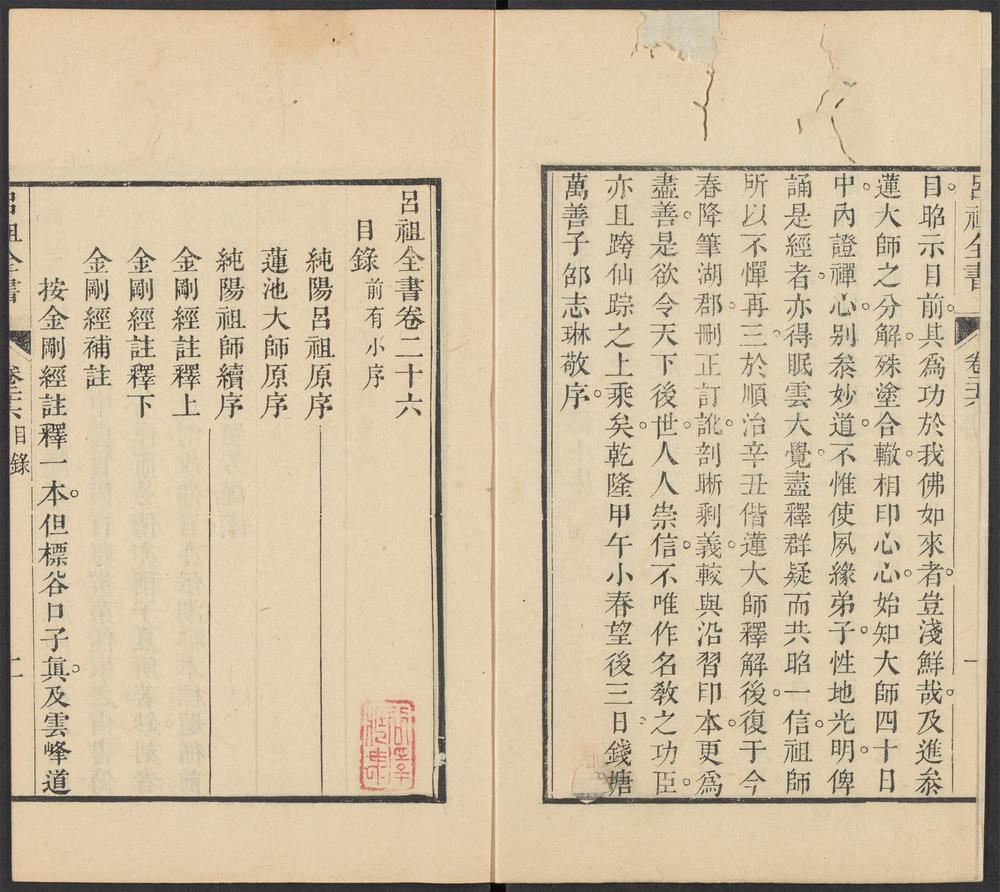 呂祖全書 卷二十六 序 一
目昭示目前。其爲功於我佛如來者。豈淺鮮哉。及進叅
蓮大師之分解。殊塗合轍。相印心心。始知大師四十日
中。內證禪心。别叅妙道。不惟使夙緣弟子。性地光明。俾
誦是經者。亦得眠雲大覺。盡釋群疑。而共昭一信。祖師
所以不憚再三。於順治辛丑偕蓮大師釋解後。復于今
春降筆湖郡。刪正訂訛。剖晰剩義。較與沿習印本。更爲
盡善。是欲令天下後世。人人崇信。不唯作名敎之功臣。
亦且跨仙踪之上乘矣。乾隆甲午小春望後三日。錢塘
萬善子邵志琳敬序。
呂祖全書卷二十六
目錄 前有小序
純陽呂祖原序
蓮池大師原序
純陽祖師續序
金剛經註釋上
金剛經註釋下
金剛經補註
按金剛經註釋一本。但標谷口子眞。及雲峰道
呂祖全書 卷二十六目錄 一